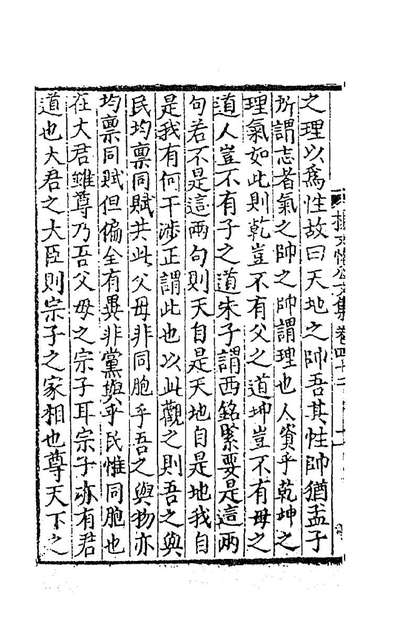 之理以爲性故曰天地之帥吾其性帥猶孟子
所謂志者氣之帥之帥謂理也人資乎乾坤之
理氣如此則乾豈不有父之道坤豈不有母之
道人豈不有子之道朱子謂西銘緊要是這兩
句若不是這兩句則天自是天地自是地我自
是我有何干涉正謂此也以此觀之則吾之與
民均禀同賦共此父母非同胞乎吾之與物亦
均禀同賦但偏全有異非黨與乎民惟同胞也
在大君雖尊乃吾父母之宗子耳宗子亦有君
道也大君之大臣則宗子之家相也尊天下之
文集卷四十